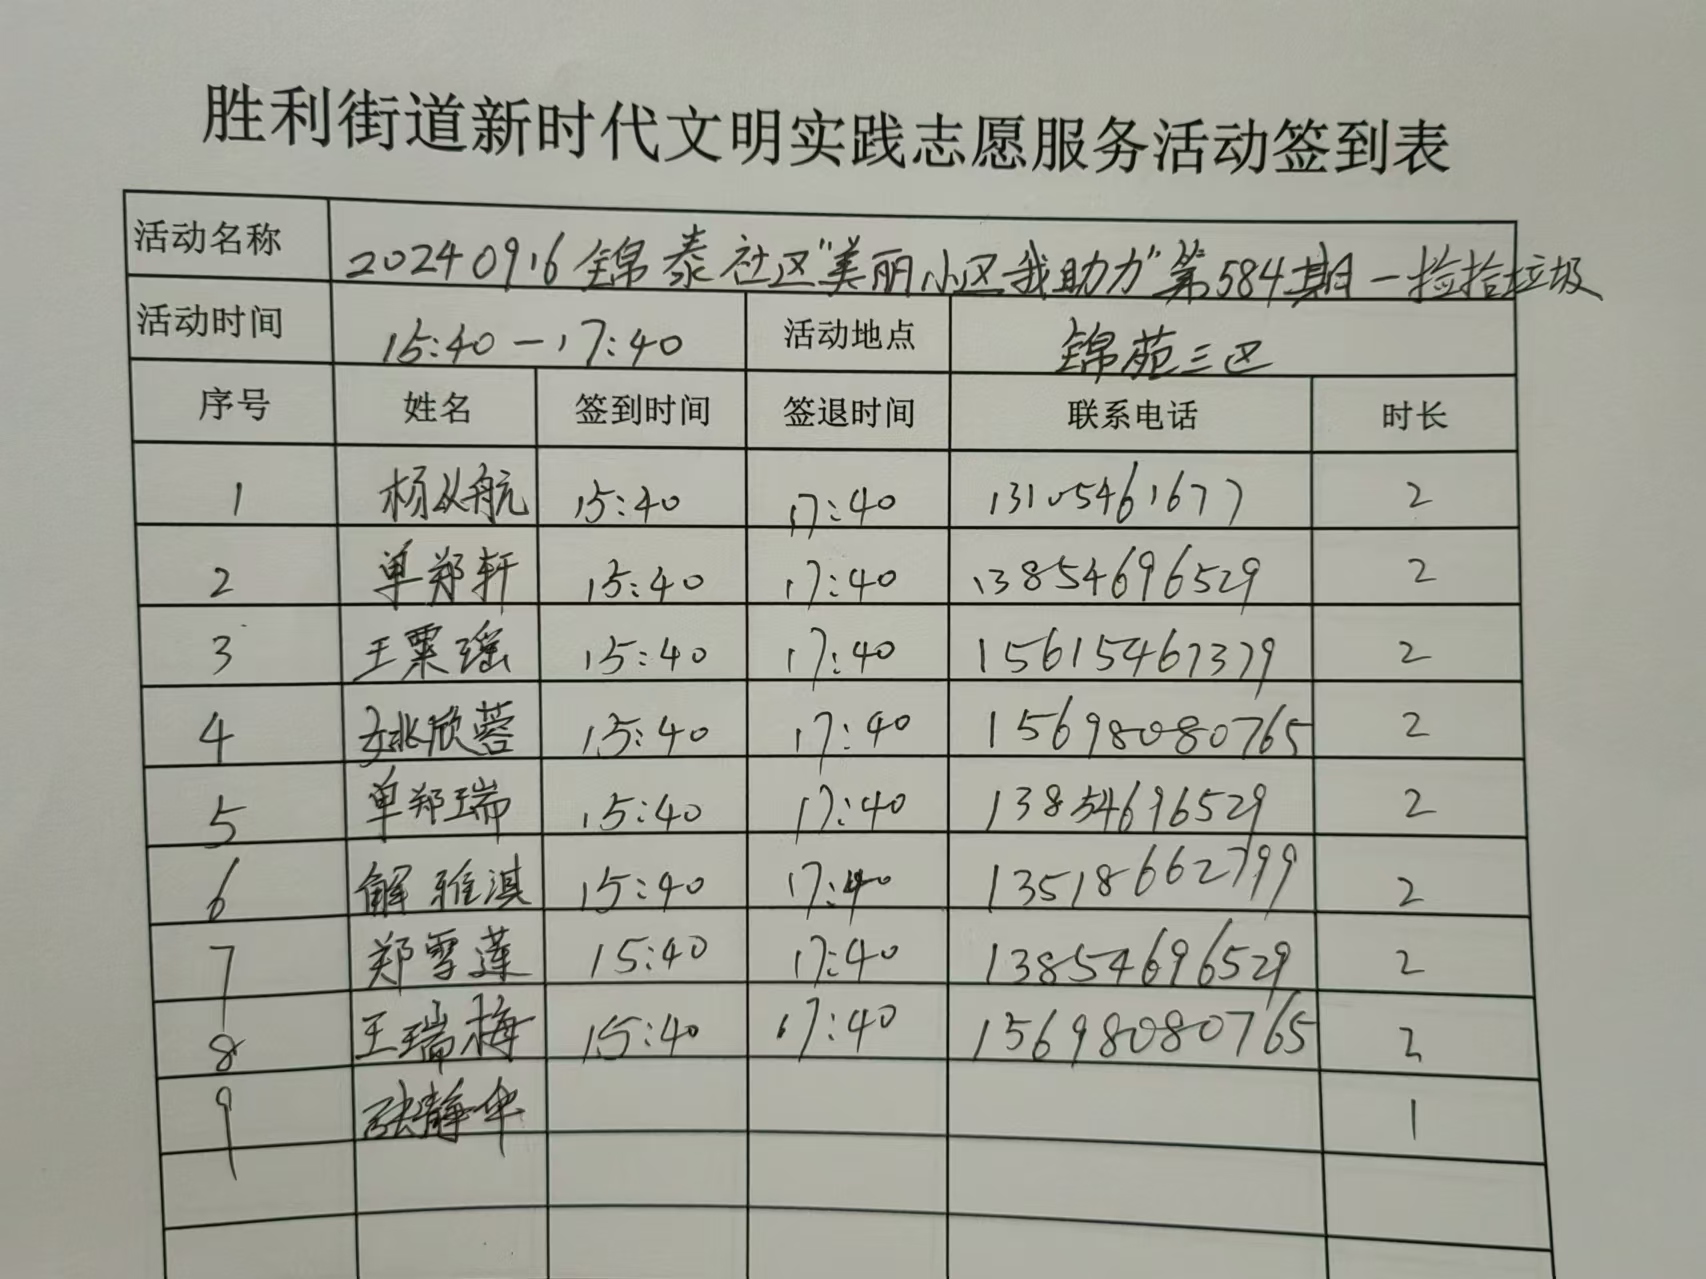 胜利街道新时代文明实践志愿服务活动签到表
活动名称 20240916锦泰社区"美丽小区我助力"第584期一捡拾垃圾
活动时间 15:40一17:40 活动地点 锦苑三区
序号 姓名 签到时间 签退时间 联系电话 时长
1 杨从航 15:40 17:40 13105461677 2
2 单郑轩 15:40 17:40 13854696529 2
3 王粟瑶 15:40 17:40 15615467379 2
4 姚欣蓉 15:40 17:40 15698080765 2
5 单郑瑞 15:40 17:40 13854696529 2
6 解雅淇 15:40 17:40 13518662799 2
7 郑雪莲 15:40 17:40 13854696529 2
8 王瑞梅 15:40 17:40 15698080765 2
9 张静华 1